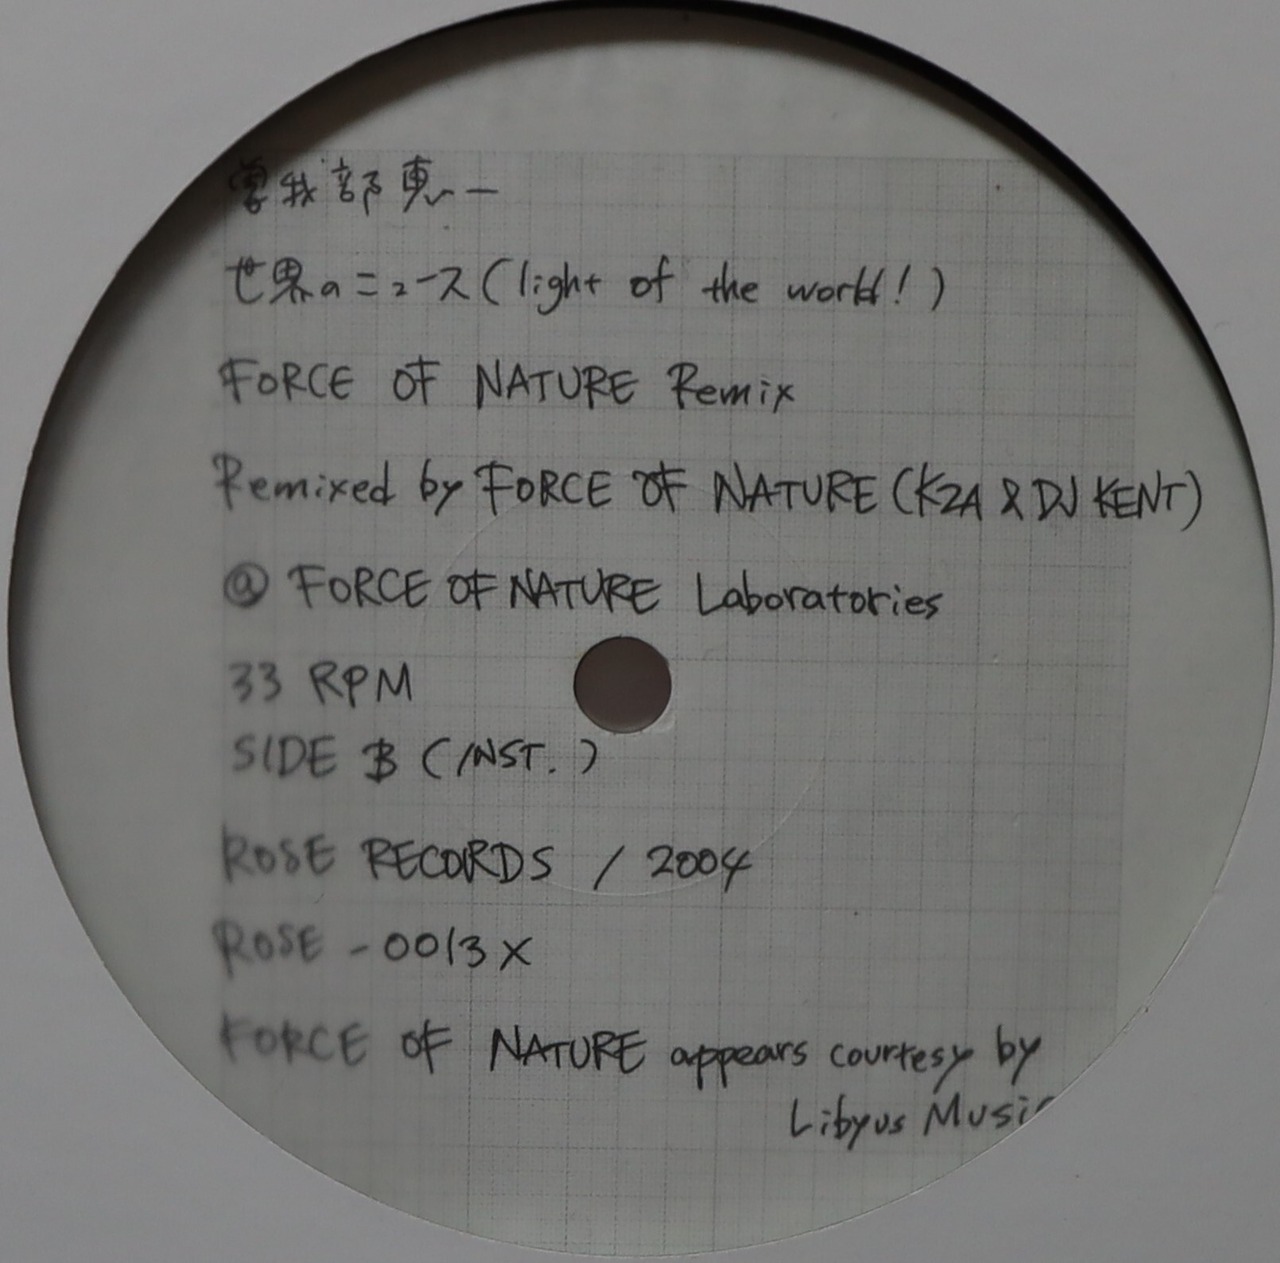 曽我部恵一
世界のニュース(light of the world!)
FORCE OF NATURE Remix
Remixed by FORCE OF NATURE (KZA & DJ KENT)
@ FORCE OF NATURE Laboratories
33 RPM
SIDE B (INST.)
ROSE RECORDS / 2004
ROSE - 0013X
FORCE OF NATURE appears courtesy by
Libyus Music